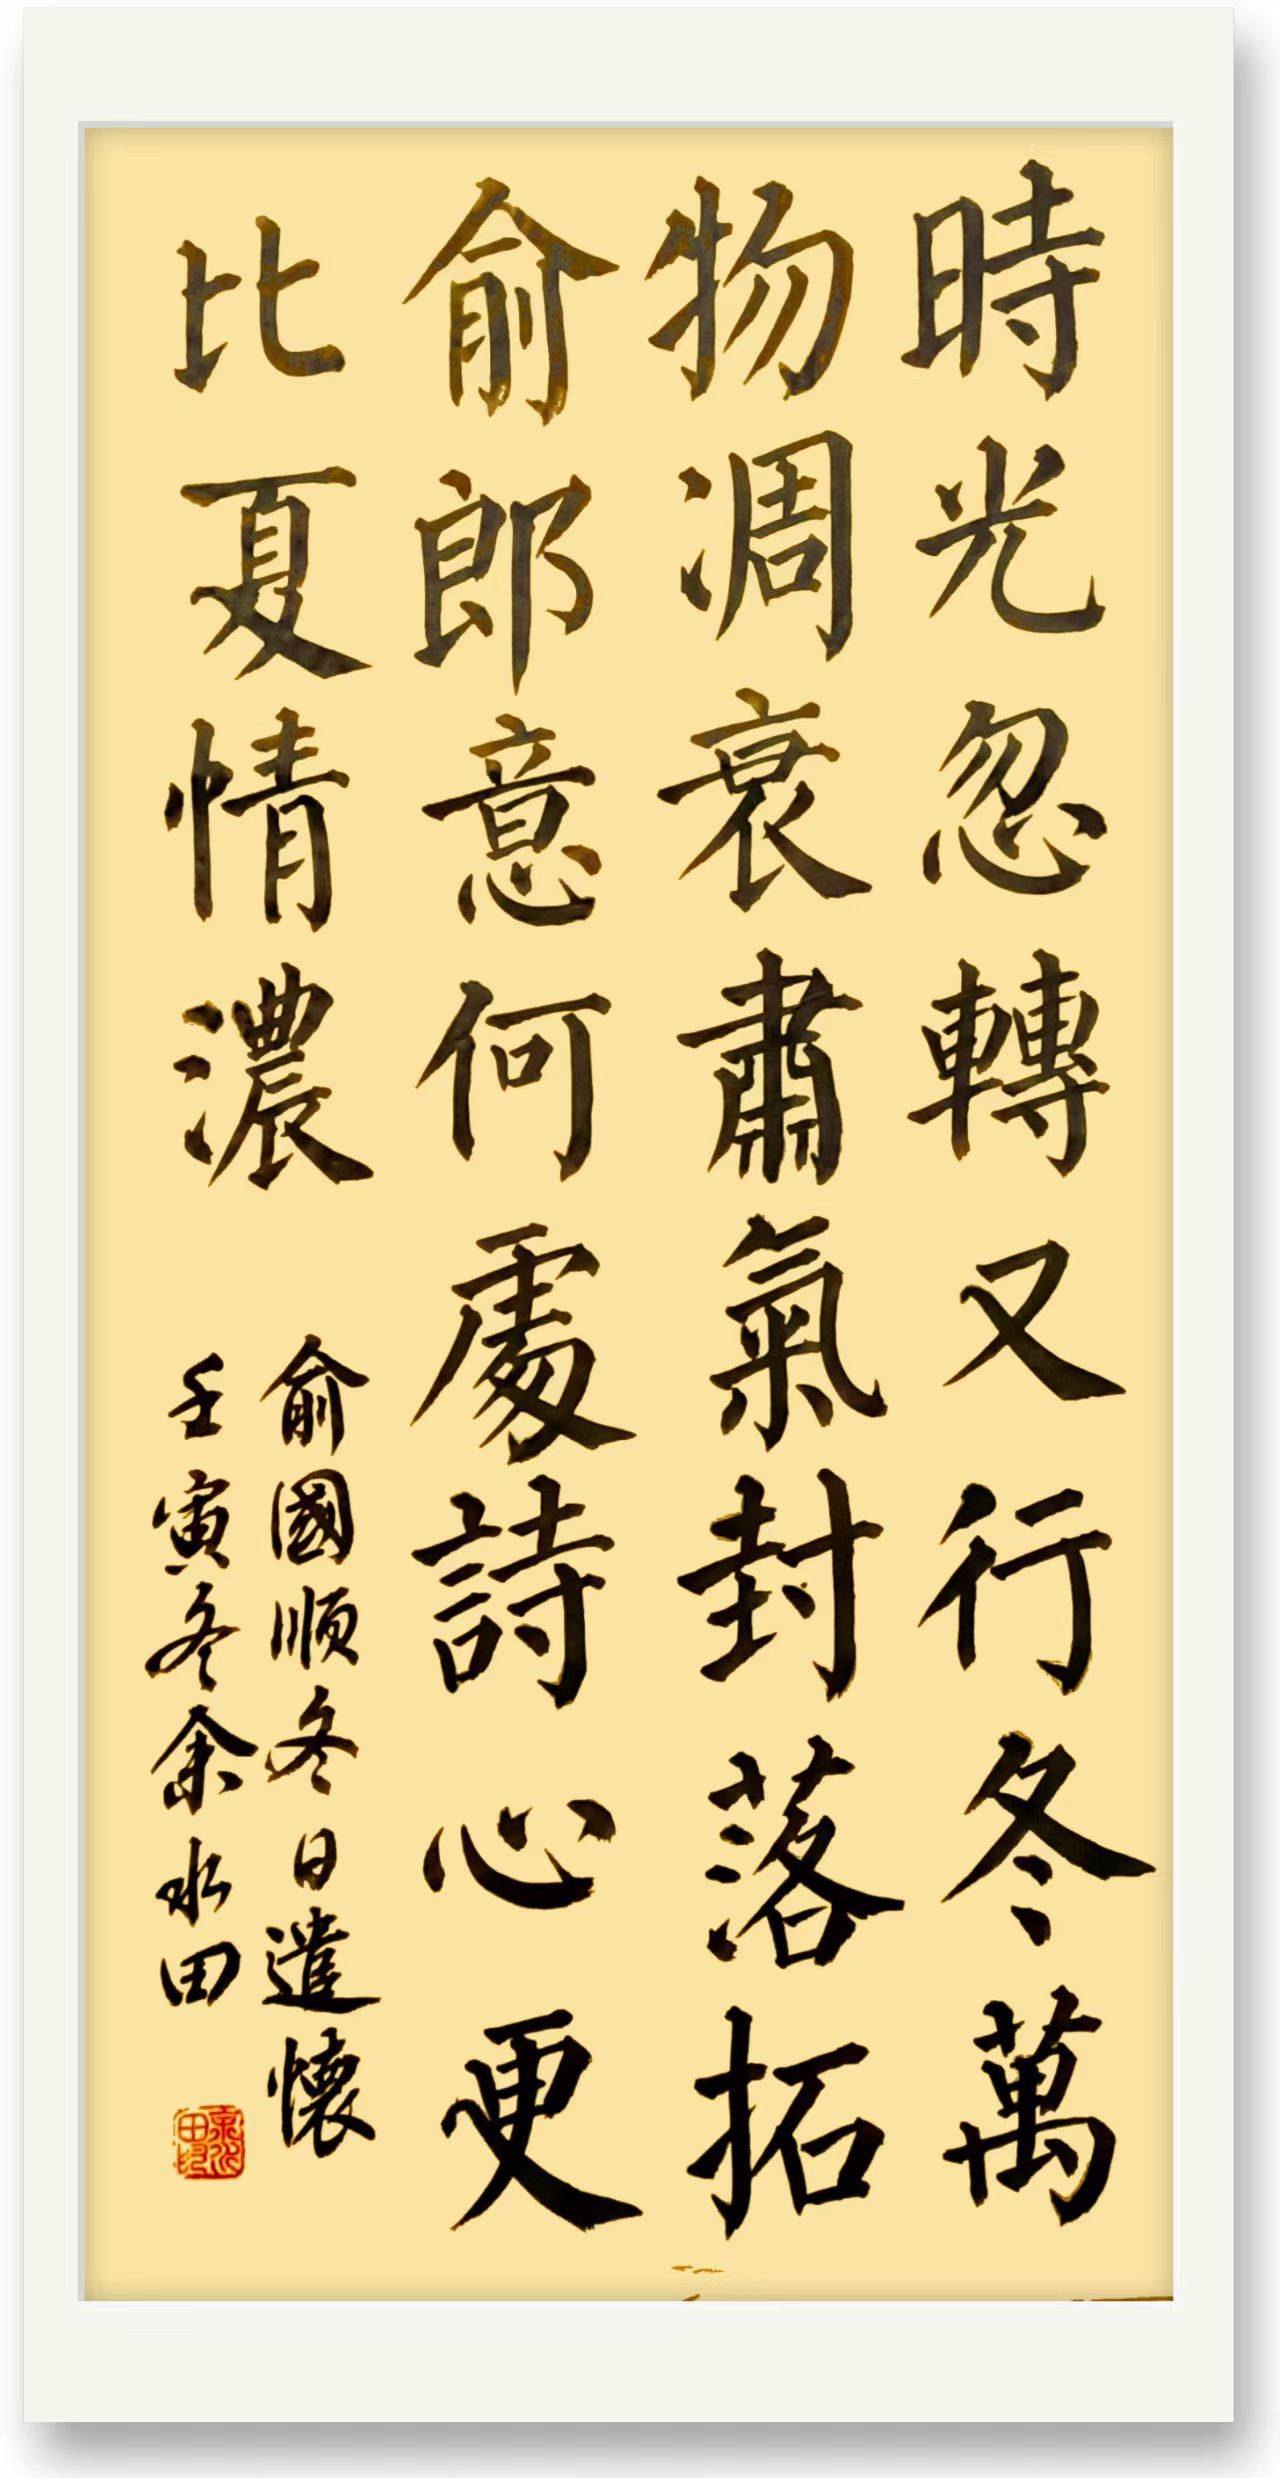 時光忽轉又行冬萬
物凋衰肅氣封落拓
俞郎意何處詩心更
比夏情濃
俞國順冬日遣懷
壬寅冬余水田